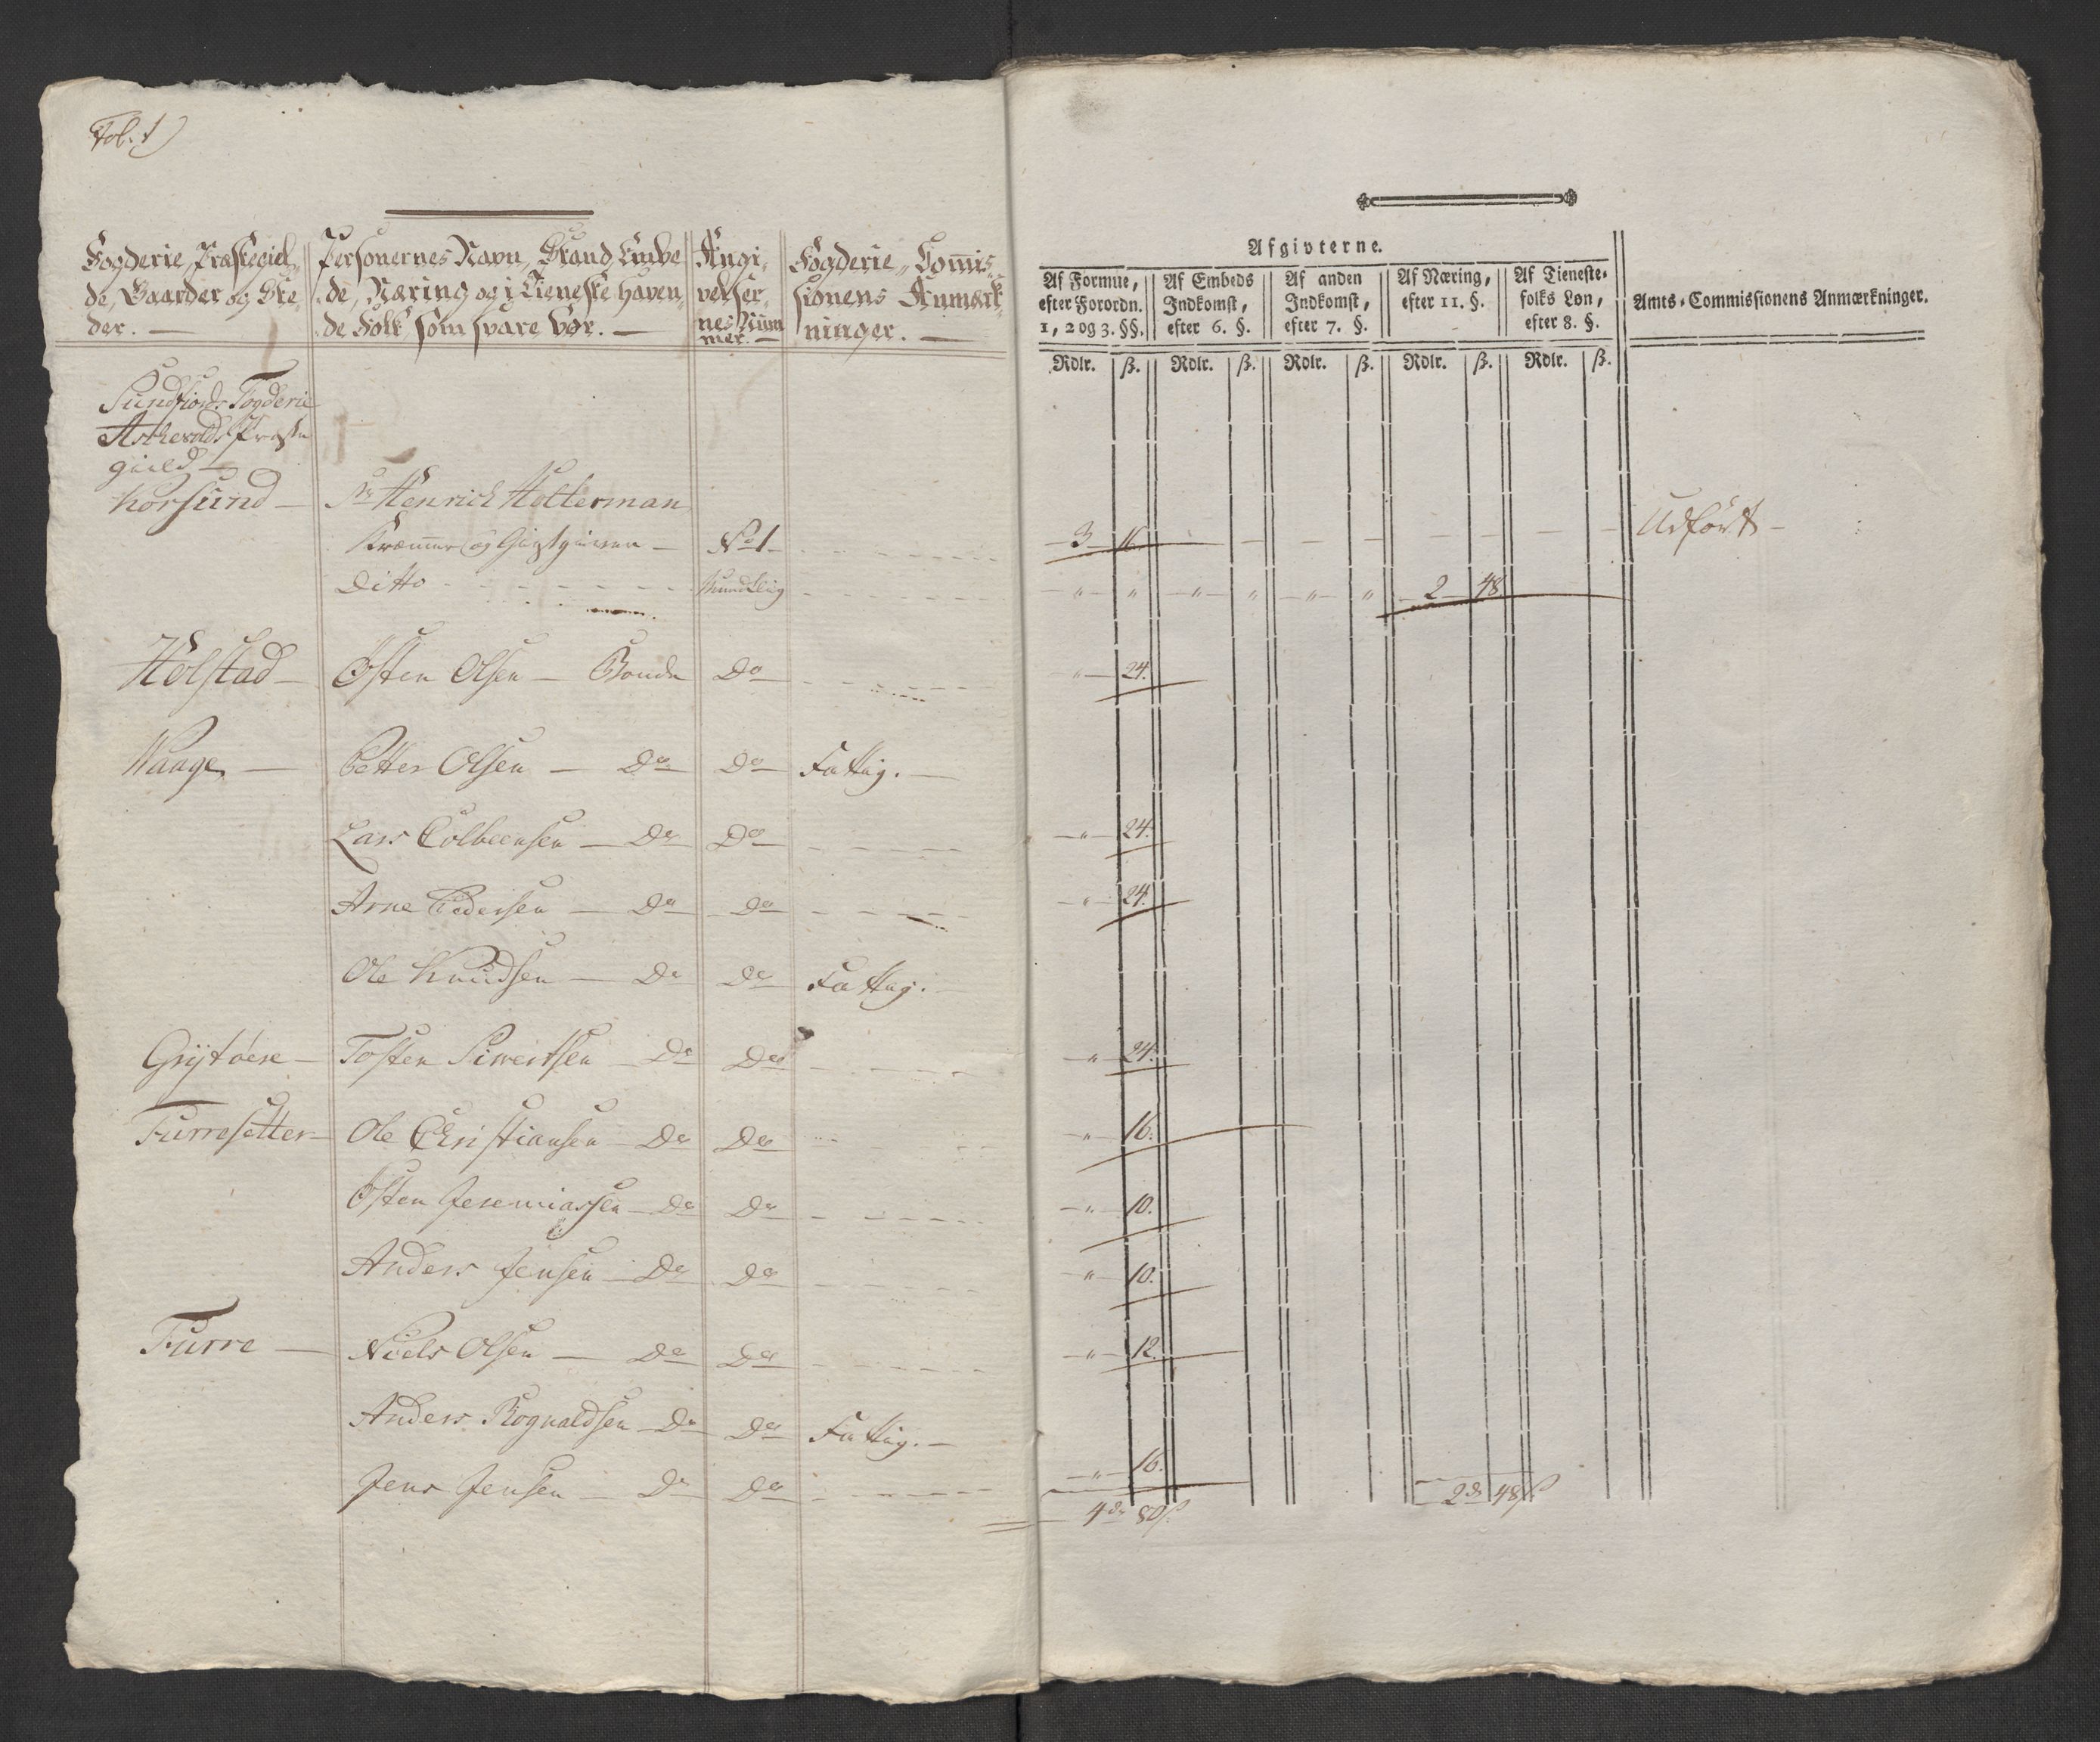 Fol. 1)
Fogderie, Præstegiel-
de, Gaarder og Ste
der. —
Personernes Navn, Stand, Embe
de, Næring og i Tieneste haven-
de Folk som svare for. —
Angi-
velser-
nes Num
mer. —
Fogderie, Com̄is-
sionens Anmærk-
ninger. —
Afgivterne.
Af Formue,
efter Forordn.
1, 2 og 3. §§.
Af Embeds
Indkomst,
efter 6. §.
Af anden
Indkomst,
efter 7. §.
Af Næring,
efter 11. §.
Af Tieneste-
folks Løn,
efter 8. §.
Amts-Commissionens Anmærkninger.
Rdlr. ß. Rdlr. ß. Rdlr. ß. Rdlr. ß. Rdlr. ß.
Sundfiords Fogderie
Askevolds Præste
gield —
Korsund — Sr Henrich Holterman
Kræm̄er og Giestgiver — No 1 — 3 16. Udført —
Ditto Mundtlig „ „ „ „ „ „ 2 48
Holstad — Østen Olsen — Bonde Do „ 24.
Waage — Petter Olsen — Do Do Fattig. —
Lars Colbeensen — Do Do „ 24.
Arne Pedersen — Do Do „ 24.
Ole Knudsen — Do Do Fattig. —
Grytøere — Tosten Siwertsen — Do Do „ 24.
Furresetter — Ole Christiansen — Do Do „ 16.
Østen Jeremiassen — Do Do „ 10.
Anders Jensen — Do Do „ 10.
Furre — Niels Olsen — Do Do „ 12.
Anders Rognaldsen — Do Do Fattig. —
Jens Jensen — Do Do „ 16.
4 dr 80 ß. 2 dr 48 ß